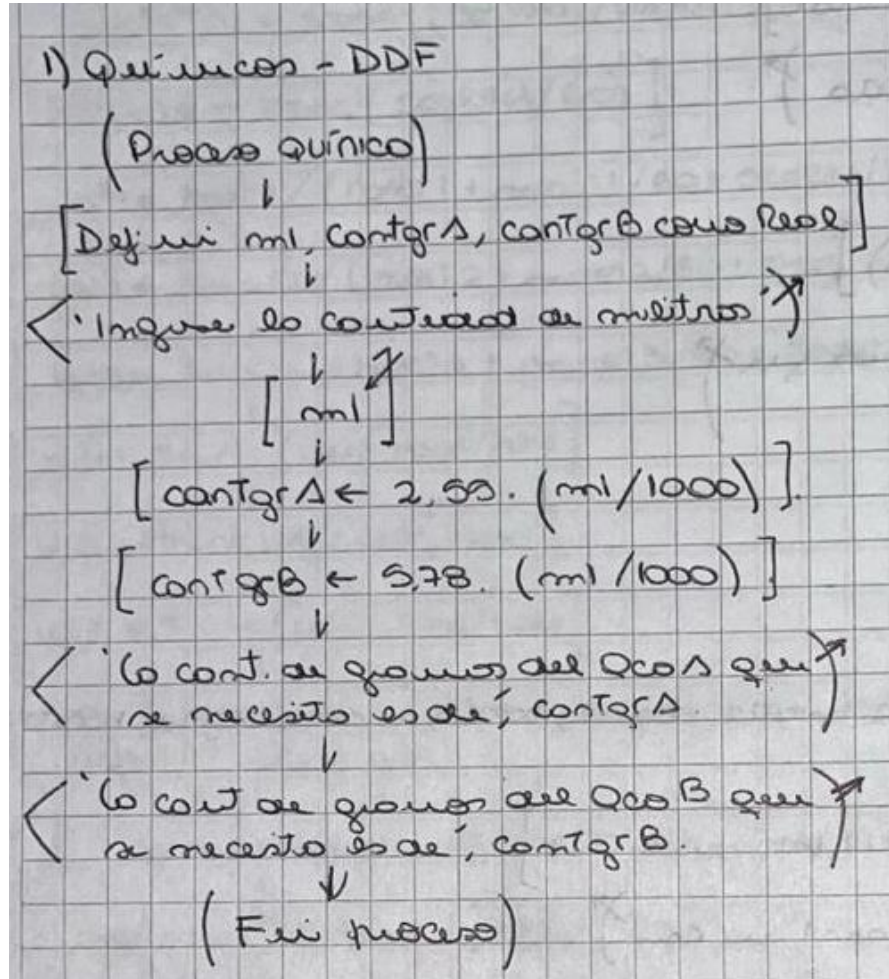 1) Químicos - DDF
(Proceso Químico)
↓
[Definir ml, cantgrA, cantgrB como Real]
↓
<'Ingrese la cantidad de mililitros'↗)
↓
[ml]
↓
[cantgrA ← 2,59. (ml/1000)].
↓
[cantgrB ← 5,78. (ml/1000)]
↓
<'La cant. de gramos del Qco A que
se necesita es de', cantgrA.
↓
<'La cant de gramos del Qco B que
se necesita es de', cantgrB.
↓
(Fin proceso)